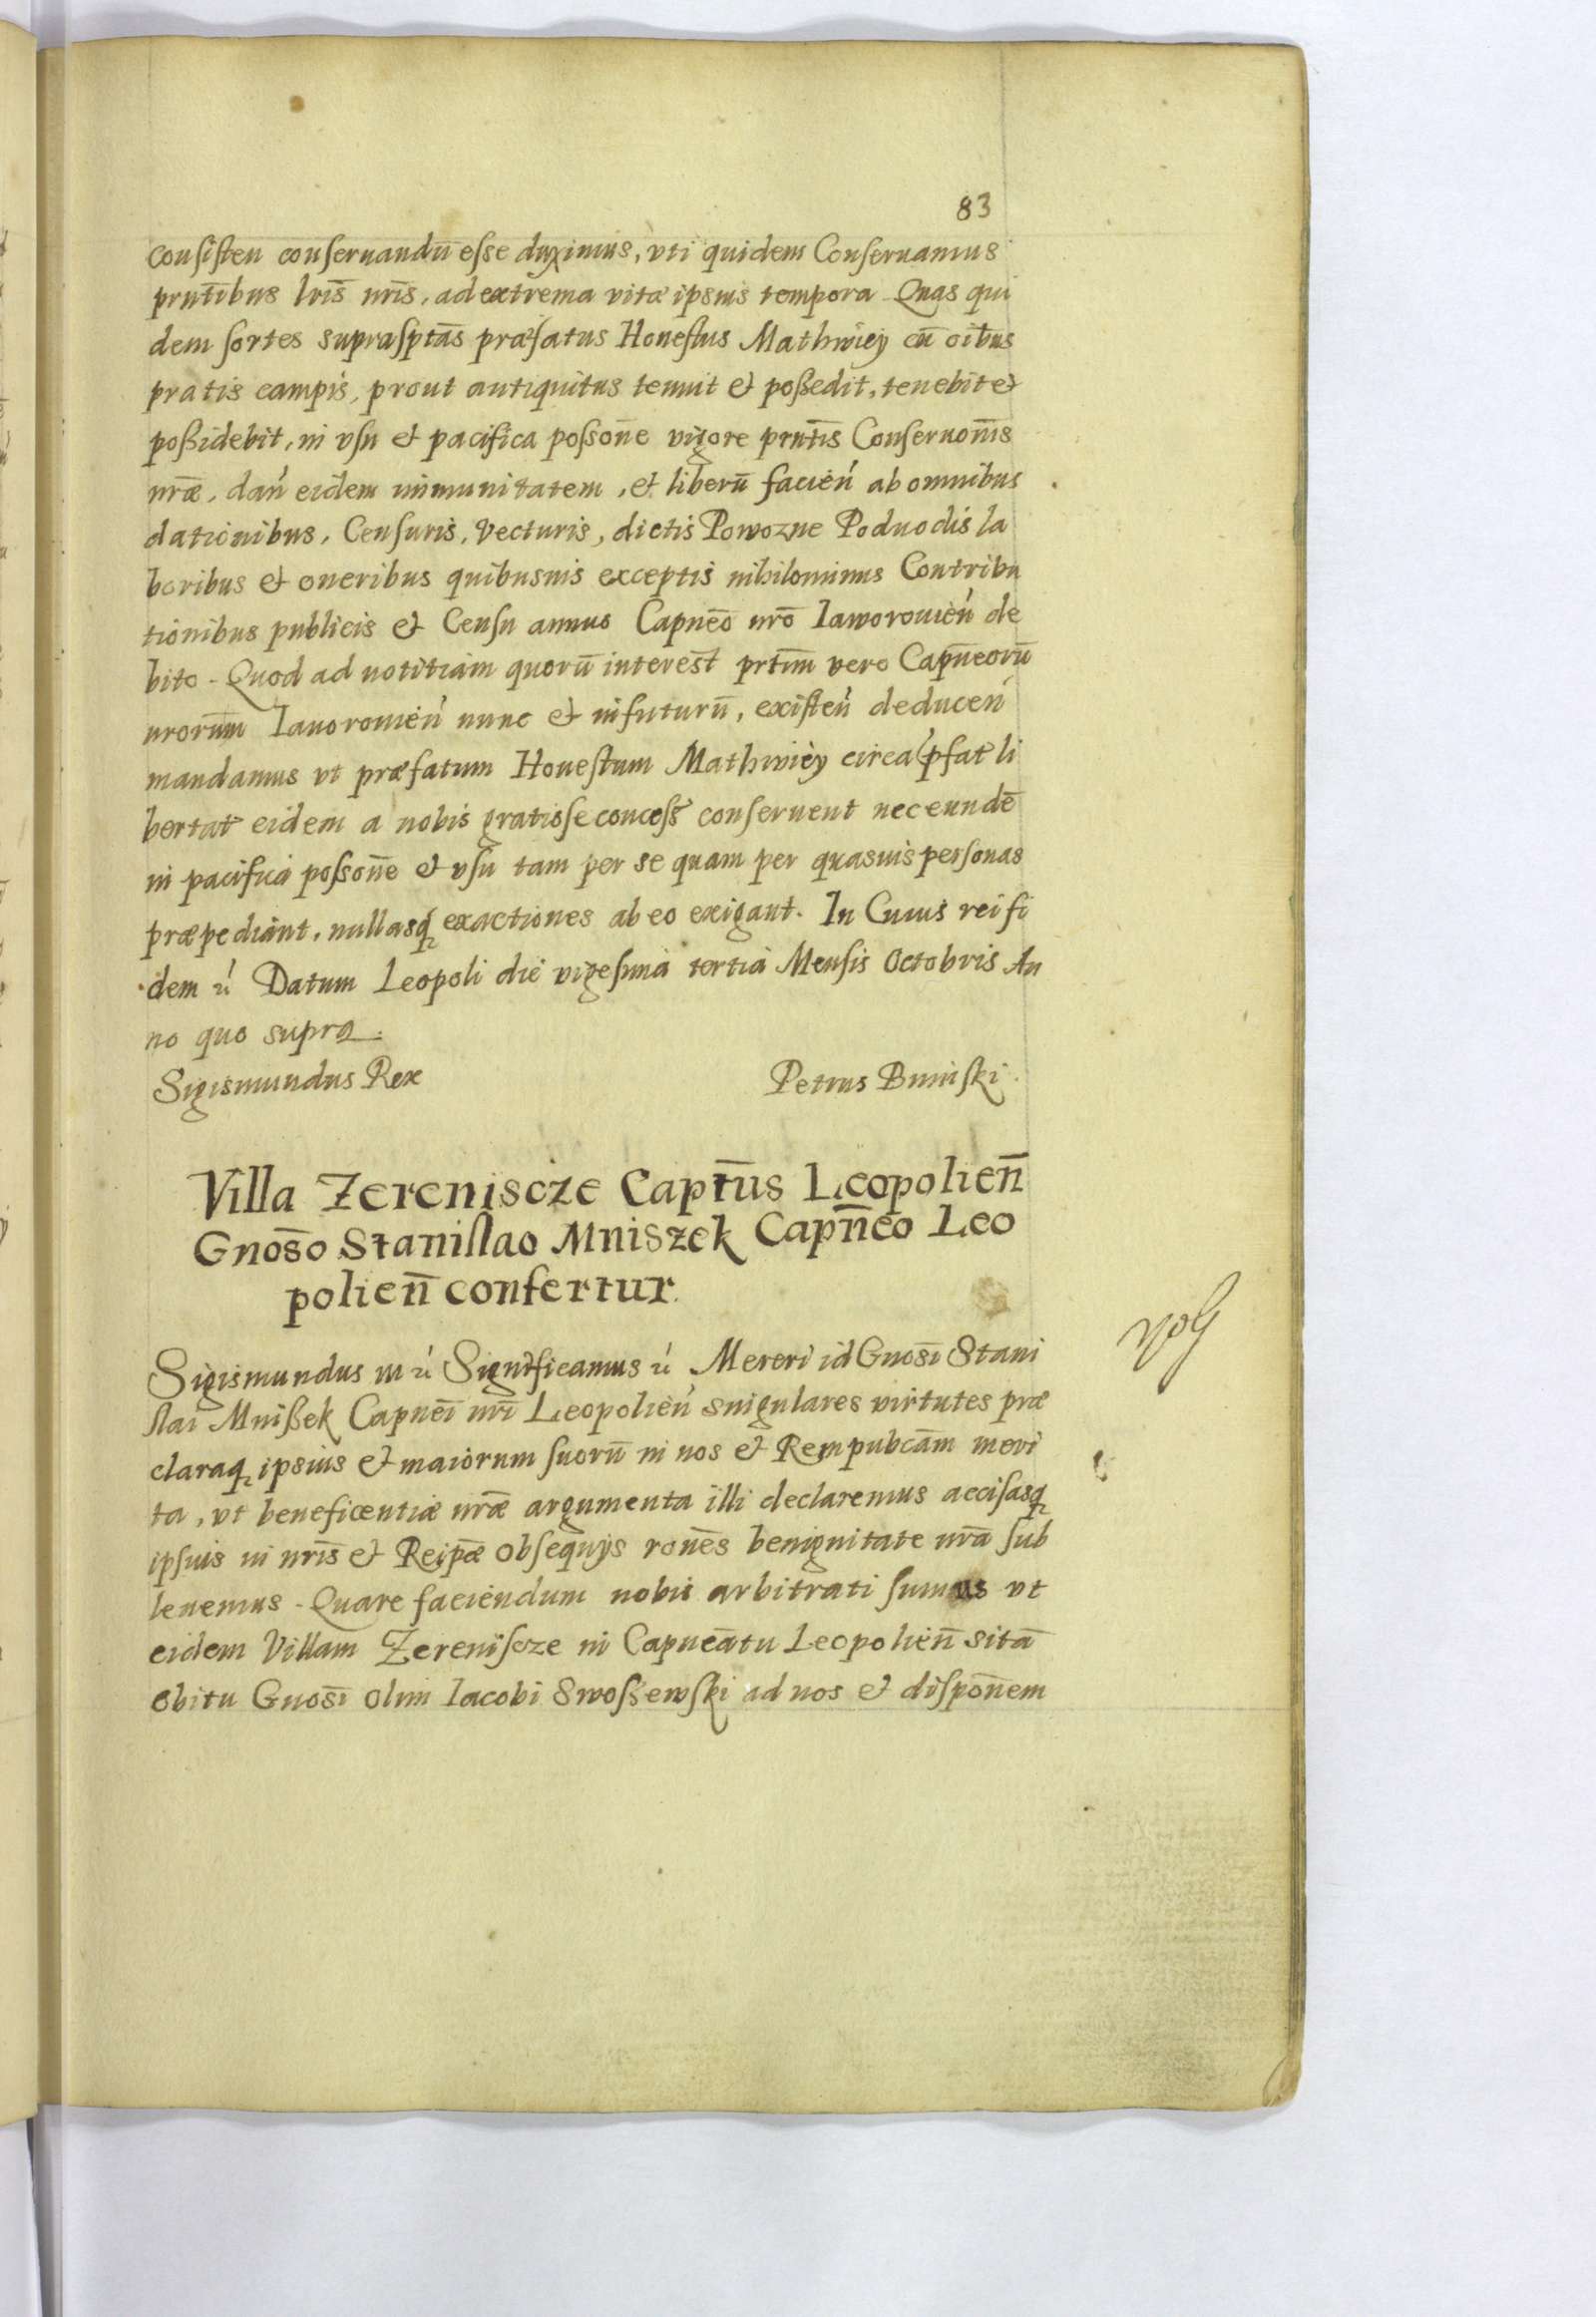 83
consisten conseruandū esse duximus, vti quidem Conseruamus
pn̄tibus lr̄is nr̄is, ad extrema vitæ ipsius tempora. Quas qui
dem sortes suprasp̄tas præfatus Honestus Mathwiey cū oībus
pratis campis, prout antiquitus tenuit et poßedit, tenebit et
poßidebit, in vsu et pacifica possōne vigore pn̄tis Conseruōnis
nr̄æ, dań eidem immunitatem, et liberū facień ab omnibus
dationibus, Censuris, Vecturis, dictis Powozne Poduodis la
boribus et oneribus quibusuis exceptis nihilominus Contribu
tionibus publicis et Censu annuo Capnēo nrō Iaworowień de
bito. Quod ad notitiam quorū interest prtīm vero Capn̄eorū
nrorūm Iauorowień nunc et in futurū, existeń deduceń
mandamus vt præfatum Honestum Mathwiey circa p̄fat li
bertat eidem a nobis gratiōse concess conseruent nec eundē
in pacifica possōne et vsu tam per se quam per quasuis personas
præpediant, nullasq exactiones ab eo exigant. In Cuius rei fi
dem ń Datum Leopoli die vigesima tertia Mensis Octobris An
no quo supra.
Sigismundus Rex Petrus Buniski.
Villa Zereniscze Capt̄us Leopolien̄
Gnosō Stanislao Mniszek Capn̄eo Leo
polien̄ confertur.
Sigismundus III ń Significamus ń Mereri id Gnosī Stani
slai Mnißek Capneī nrī Leopolień singulares virtutes præ
claraq ipsius et maiorum suorū in nos et Rempubcām meri
ta, vt beneficentiæ nrǣ argumenta illi declaremus accisasq
ipsius in nrīs et Reipǣ obsequijs ronēs benignitate nrā sub
leuemus. Quare faciendum nobis arbitrati sumus vt
eidem Villam Zereniscze in Capneātu Leopolien̄ sitā
obitu Gnosī olim Iacobi Swoßewski ad nos et dispōnem